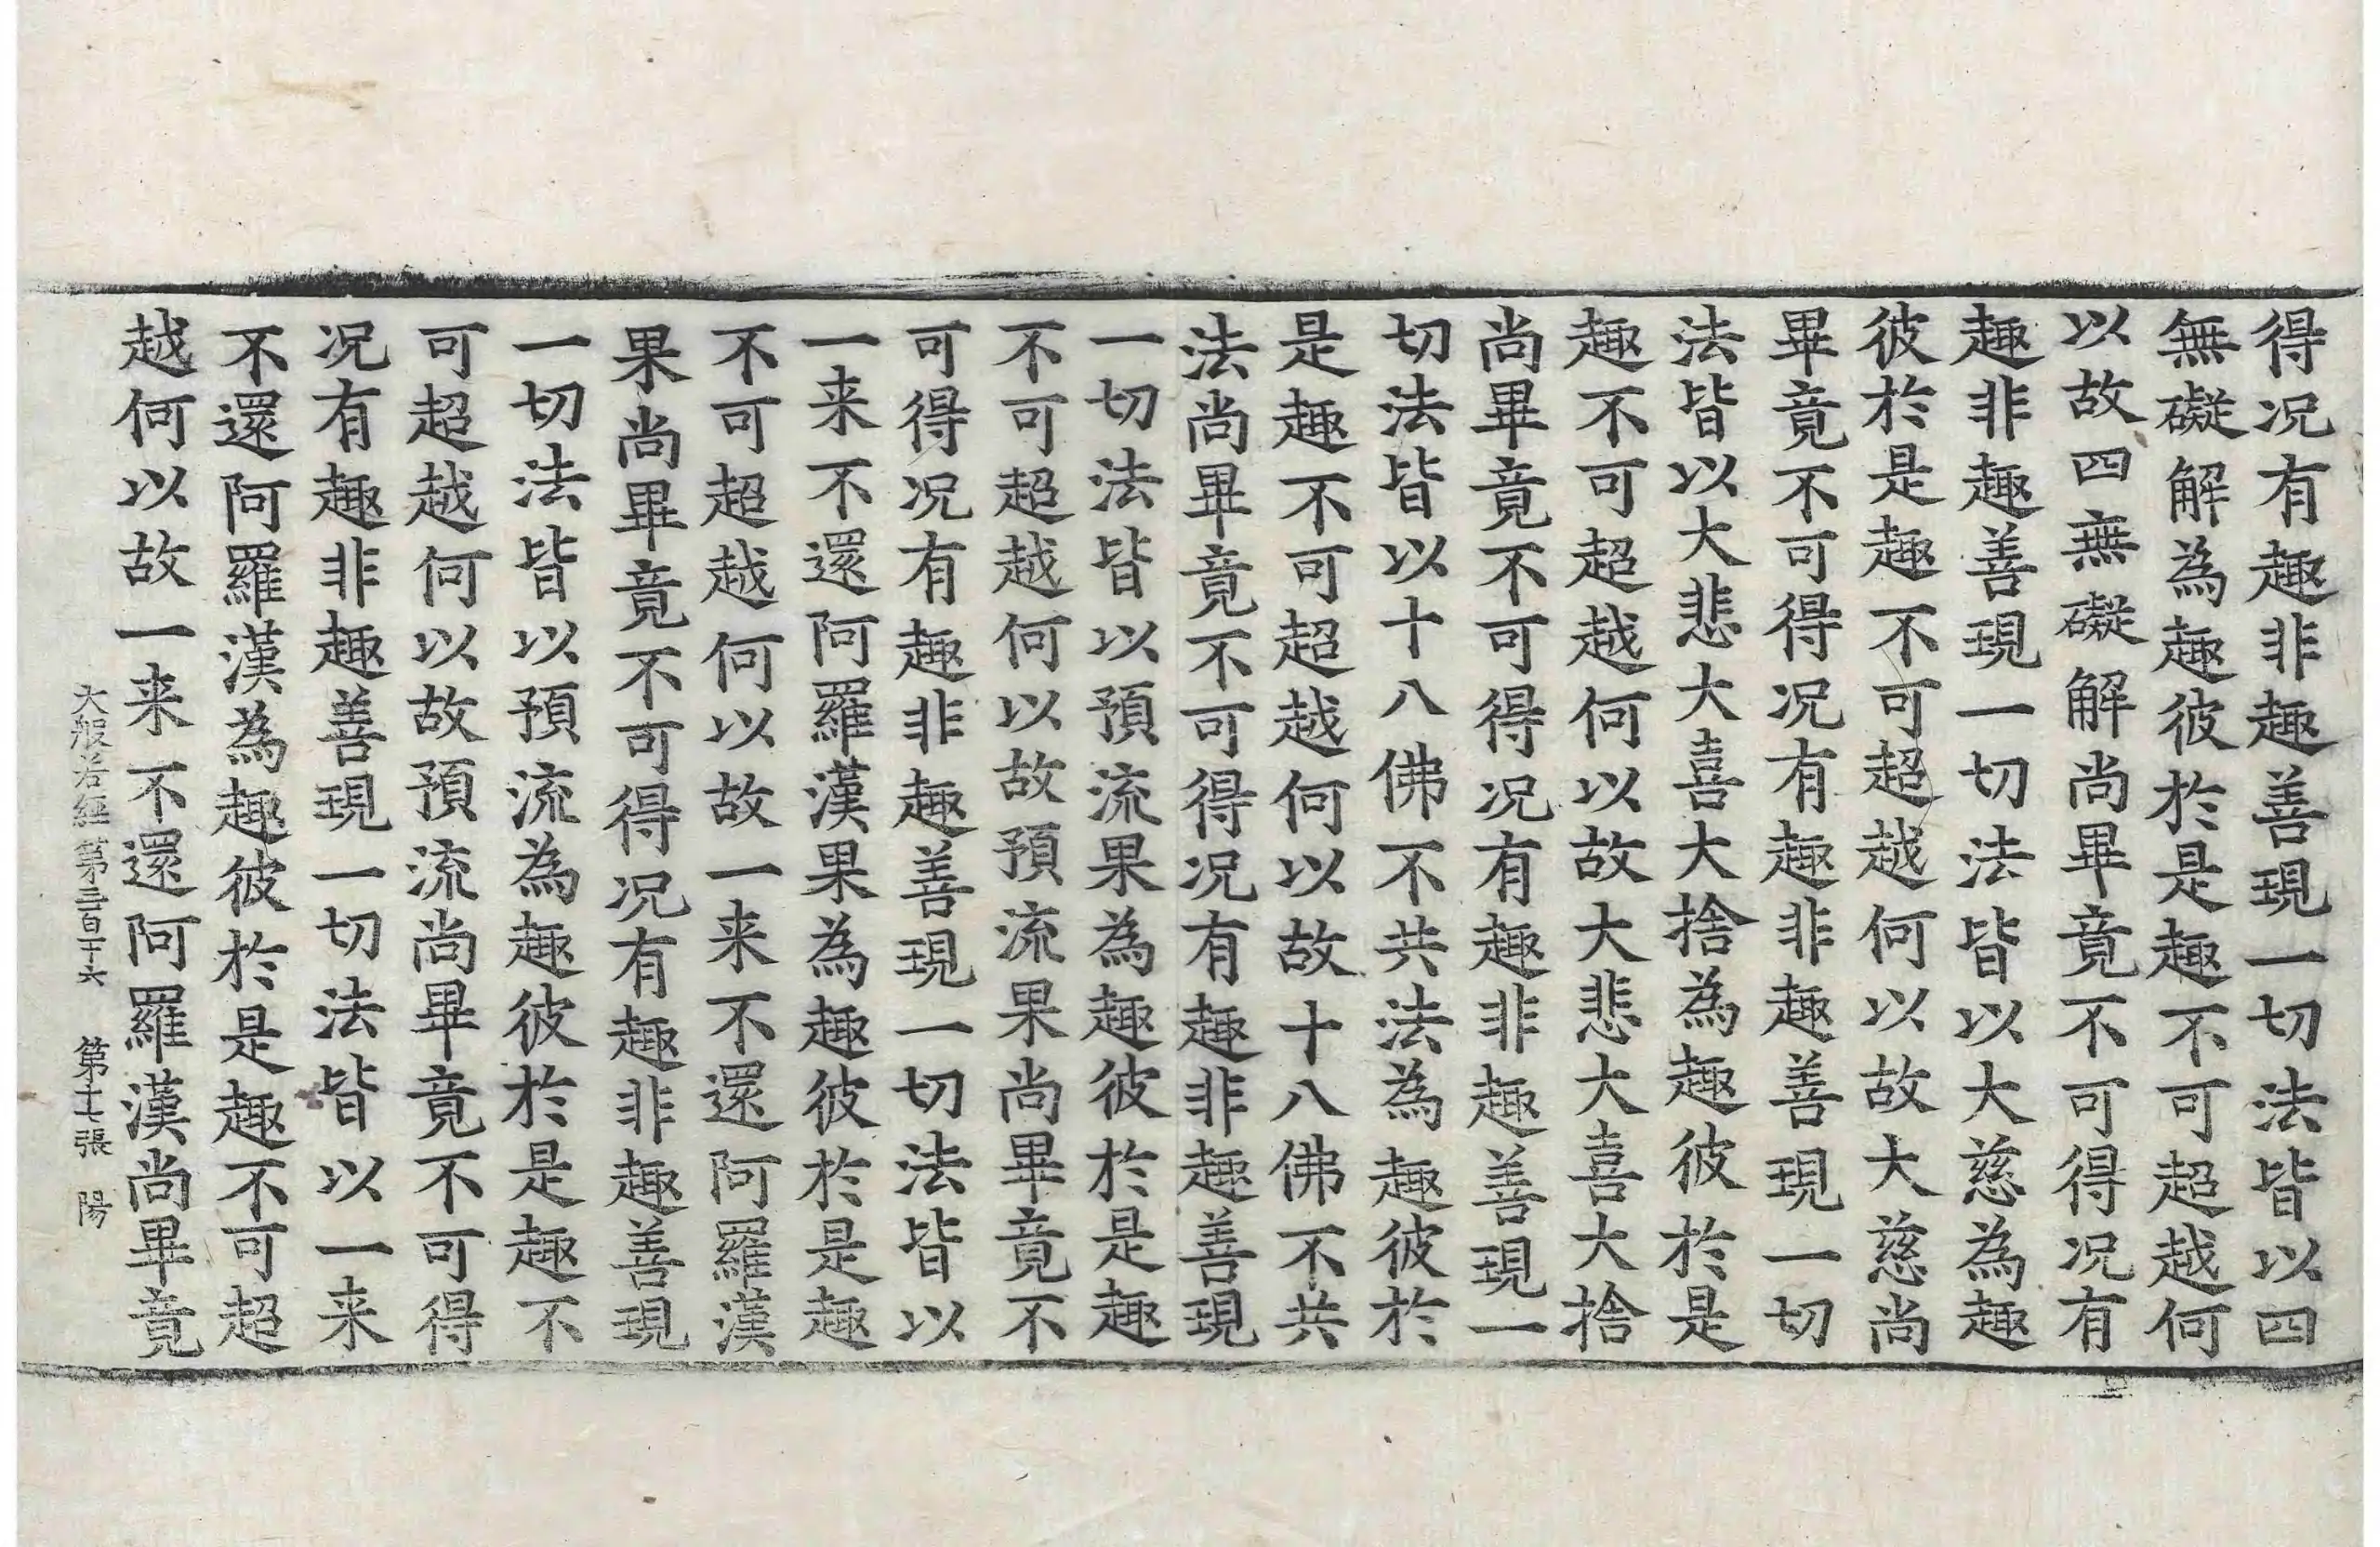 得况有趣非趣善現一切法皆以四
無礙解為趣彼於是趣不可超越何
以故四無礙解尚畢竟不可得况有
趣非趣善現一切法皆以大慈為趣
彼於是趣不可超越何以故大慈尚
畢竟不可得况有趣非趣善現一切
法皆以大悲大喜大捨為趣彼於是
趣不可超越何以故大悲大喜大捨
尚畢竟不可得况有趣非趣善現一
切法皆以十八佛不共法為趣彼於
是趣不可超越何以故十八佛不共
法尚畢竟不可得况有趣非趣善現
一切法皆以預流果為趣彼於是趣
不可超越何以故預流果尚畢竟不
可得况有趣非趣善現一切法皆以
一来不還阿羅漢果為趣彼於是趣
不可超越何以故一来不還阿羅漢
果尚畢竟不可得况有趣非趣善現
一切法皆以預流為趣彼於是趣不
可超越何以故預流尚畢竟不可得
况有趣非趣善現一切法皆以一来
不還阿羅漢為趣彼於是趣不可超
越何以故一来不還阿羅漢尚畢竟
大般若經第三百十六 第十七張 陽